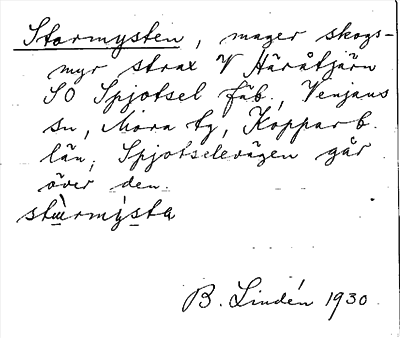 Stormysten, mager skogs-
myr strax V Häråtjärn
SO Spjotsel fäb., Venjans
sn, Mora tg, Kopparb.
län, Spjotselevägen går
över den.
stùrmýsta
B. Lindén 1930.